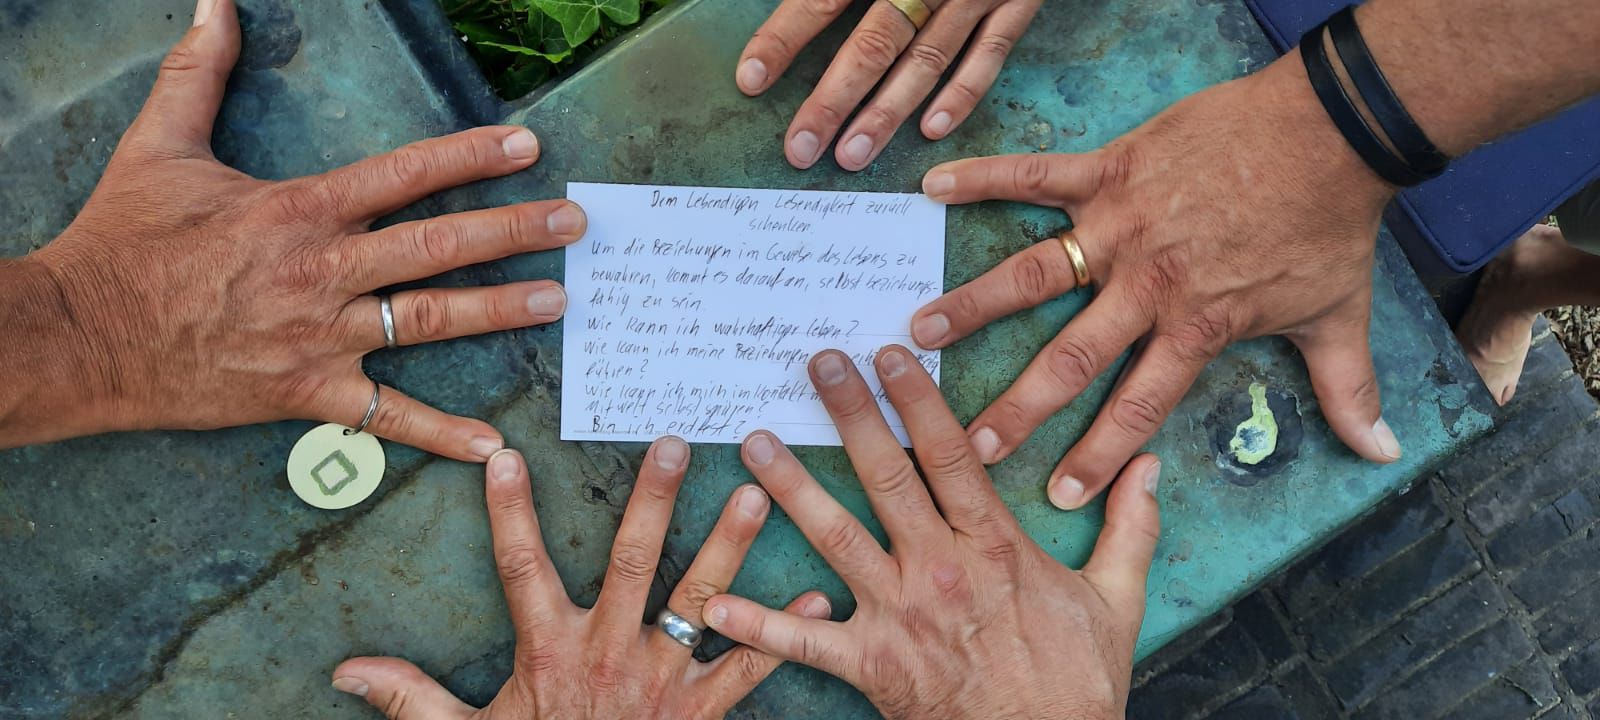 Dem Lebendigen Lebendigkeit zurück
schenken.
Um die Beziehungen im Gewebe des Lebens zu
bewahren, kommt es darauf an, selbst beziehungs-
fähig zu sein.
Wie kann ich wahrhaftiger leben?
Wie kann ich meine Beziehungen
führen?
Wie kann ich mich im Kontakt
Mitwelt selbst spüren?
Bin ich erdfest?